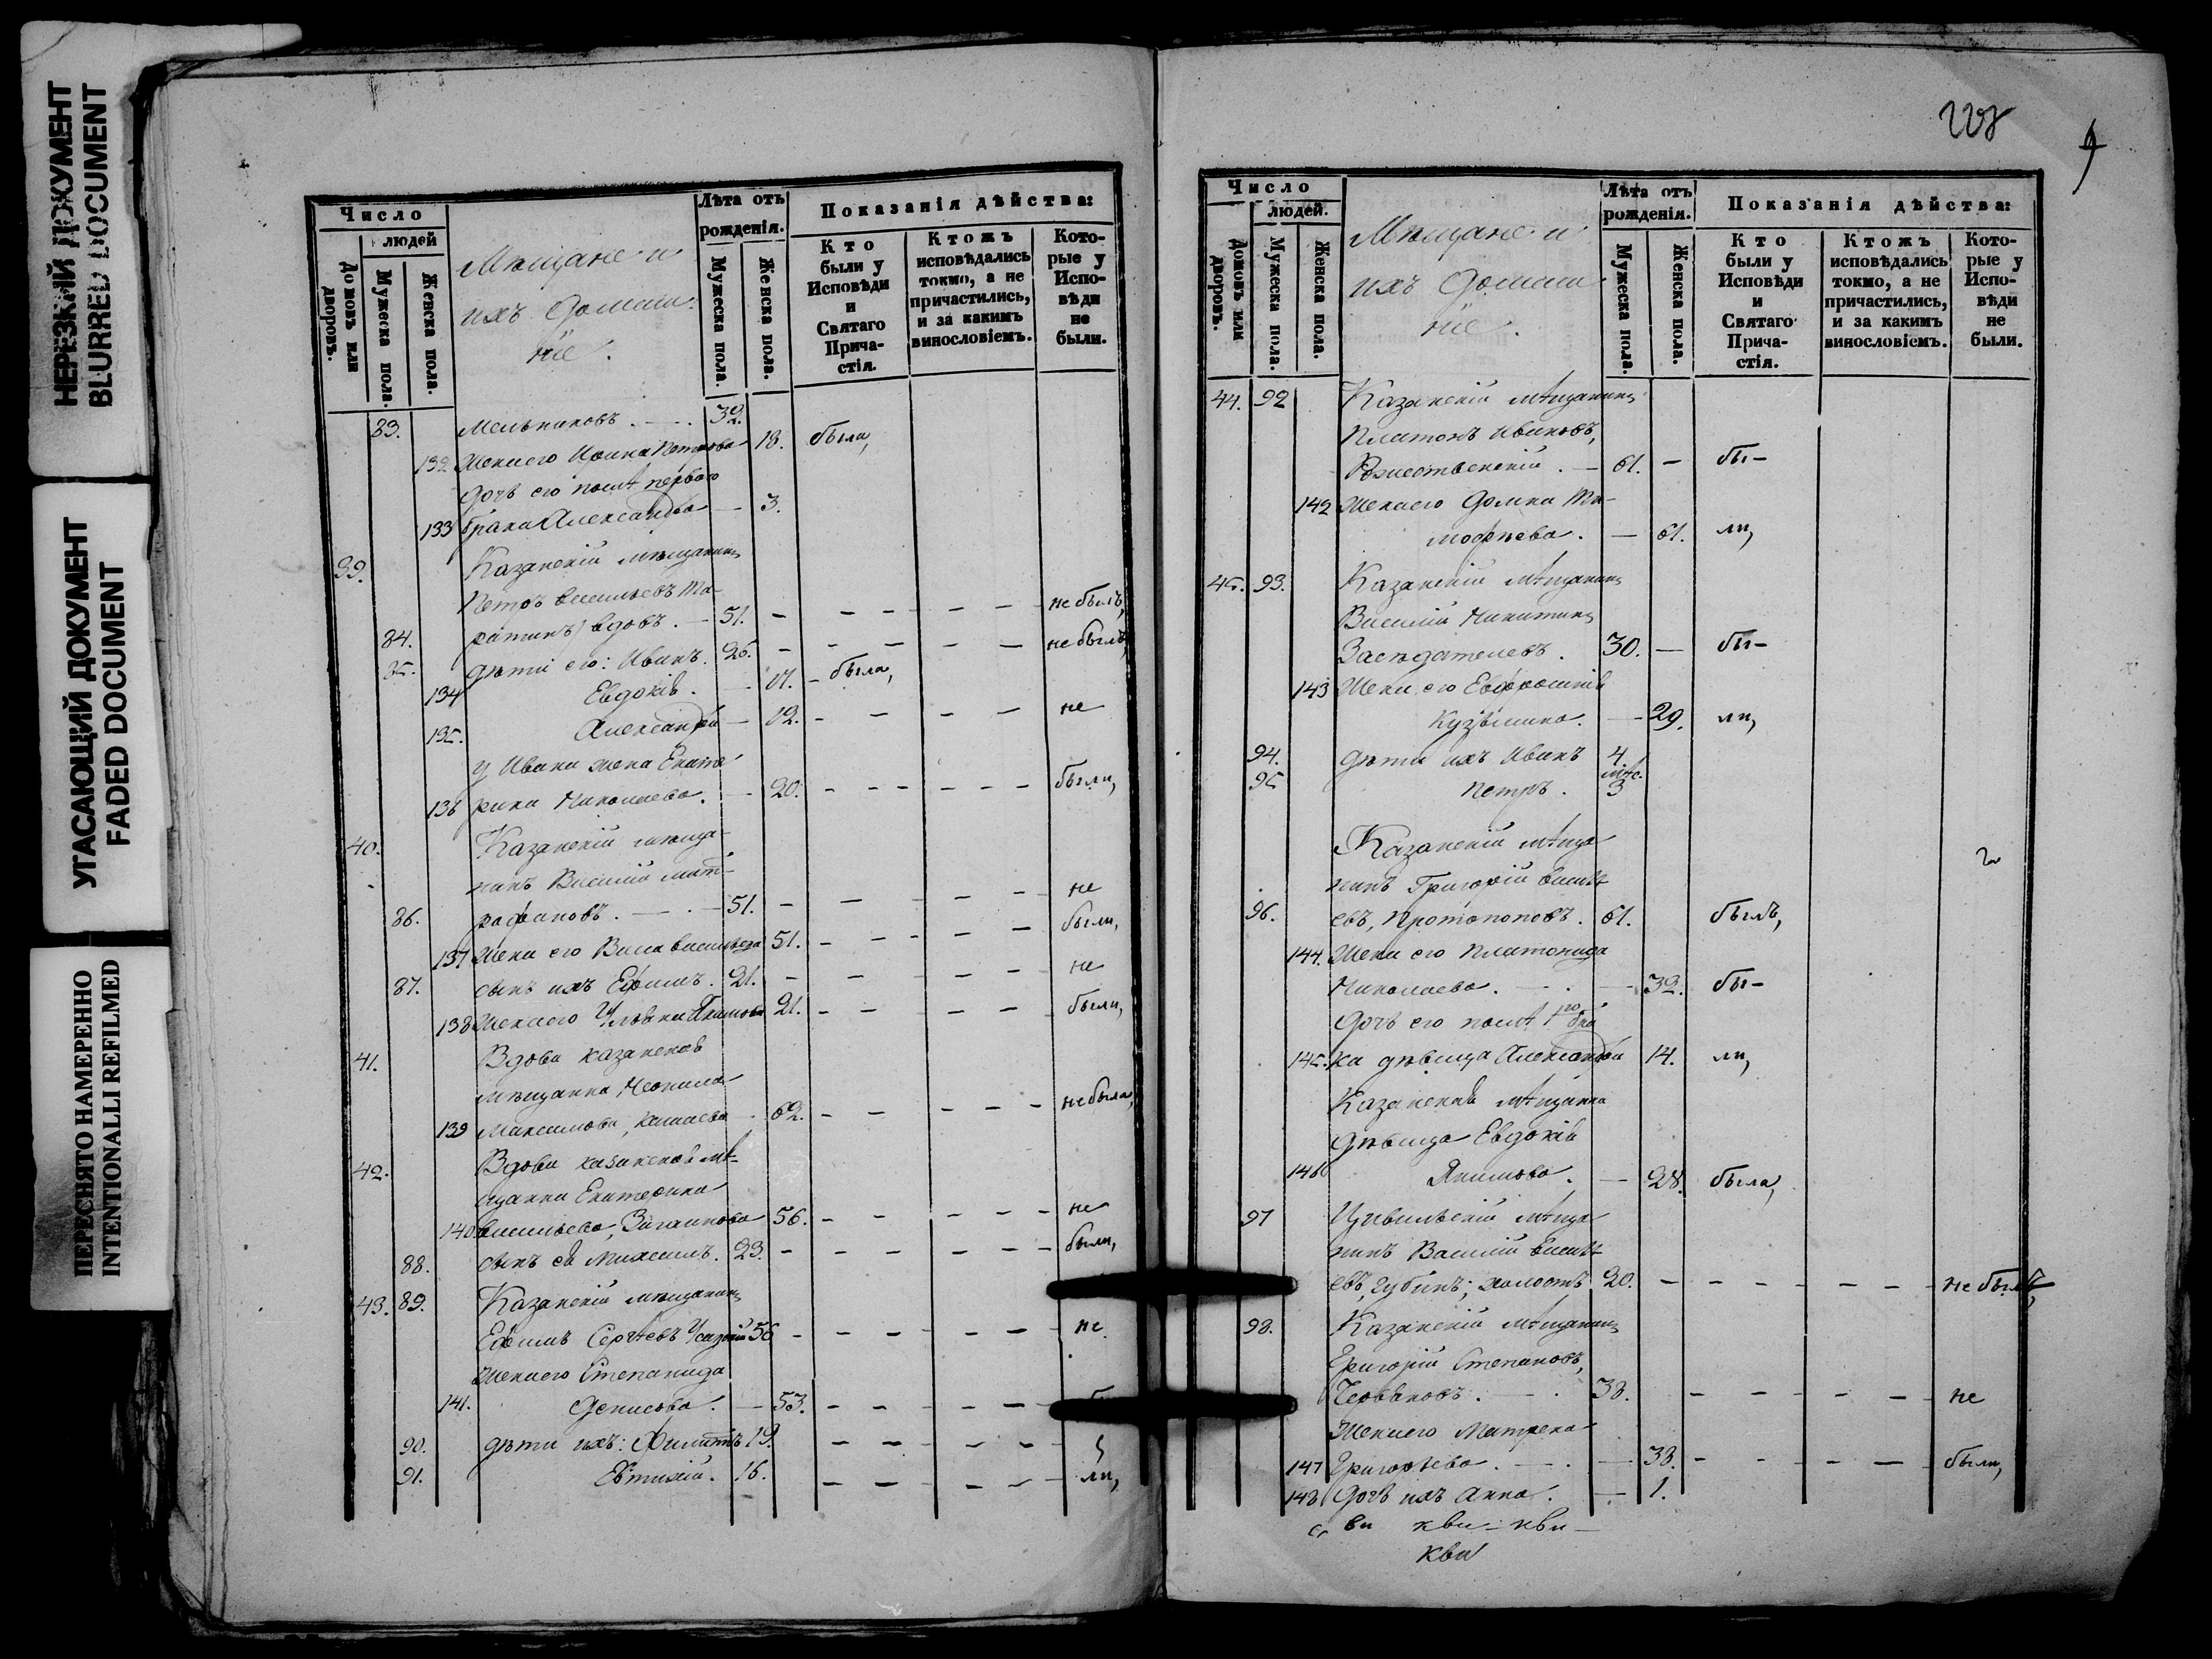 НЕРЕЗКИЙ ДОКУМЕНТ
BLURRED DOCUMENT
УГАСАЮЩИЙ ДОКУМЕНТ
FADED DOCUMENT
ПЕРЕСНЯТО НАМЕРЕННО
INTENTIONALLI REFILMED
Число
людей
Домовъ или дворовъ.
Мужеска пола.
Женска пола.
Мѣщане и
ихъ домаш-
нiе.
Лѣта отъ
рожденія.
Мужеска пола.
Женска пола.
Показанія дѣйства:
Кто
были у
Исповѣди
и
Святаго
Прича-
стія.
Ктожъ
исповѣдались
токмо, а не
причастились,
и за какимъ
винословіемъ.
Кото-
рые у
Испо-
вѣди
не
были.
83. Мельниковъ. 32.
132 Жена его Ирина Петрова 18. была,
дочь его после перваго
133 брака Александра — 3.
39. Казанскій мѣщанинъ
Петръ Васильевъ Та-
84. ратинъ, вдовъ. — 51. не былъ,
85. дѣти его: Иванъ. 25. не былъ,
134 Евдокія. 17. была,
135. Александра — 12. не
у Ивана жена Екате-
136 рина Николаева. 20. были,
40. Казанскій мѣща-
нинъ Василій Мит-
86. рофановъ. 51. не
137 Жена его Васса Васильева 51. были,
87. сынъ ихъ Ефимъ. 21. не
138 Жена его Ульяна Акимова 21. были,
41. Вдова казанская
мѣщанка, Неонила
139 Максимова, 62. не была,
42. Вдова казанская мѣ-
щанка Екатерина
140. Васильева, 56. не
88. сынъ ея Михаилъ. 23. были,
43. 89. Казанскій мѣщанинъ
Ефимъ Сергѣевъ 56 не
Жена его Степанида
141. Денисова. — 53.
90. дѣти ихъ: Филиппъ 19.
91. Евтихій. 16. ли,
Число
людей.
Домовъ или дворовъ.
Мужеска пола.
Женска пола.
Мѣщане и
ихъ домаш-
нiе.
Лѣта отъ
рожденія.
Мужеска пола.
Женска пола.
Показанія дѣйства:
Кто
были у
Исповѣди
и
Святаго
Прича-
стія.
Ктожъ
исповѣдались
токмо, а не
причастились,
и за какимъ
винословіемъ.
Кото-
рые у
Испо-
вѣди
не
были.
44. 92 Казанскій мѣщанинъ
Платонъ Ивановъ,
Рожественскій. — 61. — бы-
142 Жена его Домна Ти-
мофѣева. — 61. ли,
45. 93. Казанскій мѣщанинъ
Василій Никитинъ
Засѣдателевъ. 30. — бы-
143 Жена его Евфросинія
Кузьмина. — 29. ли,
94. дѣти ихъ Иванъ 4.
95 Петръ. мѣс. 3
Казанскій мѣща-
нинъ Григорій Василь-
96. евъ, Протопоповъ. 61. былъ,
144. Жена его Платонида
Николаева. — 32. бы-
дочь его после 1го бра-
145. ка дѣвица Александра 14. ли,
Казанская мѣщанка
дѣвица Евдокія
146 Якимова. — 28. была,
97 Цивильскій мѣща-
нинъ Василій Василь-
евъ, Губинъ; холостъ 20. не былъ,
98. Казанскій мѣщанинъ
Григорій Степановъ,
Червяковъ. 38. не
Жена его Матрена
147 Григорьева. 38. были,
148 Дочь ихъ Анна. — 1.